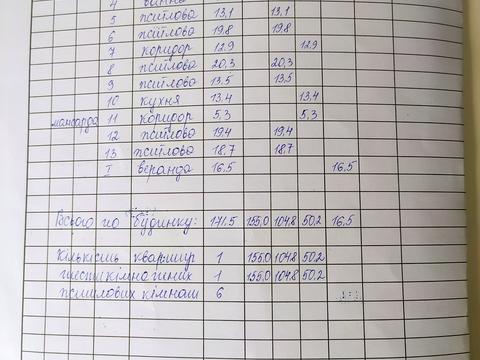 4 ванна
5 житлова 13,1 13,1
6 житлова 19,8 19,8
7 коридор 12,9 12,9
8 житлова 20,3 20,3
9 житлова 13,5 13,5
10 кухня 13,4 13,4
мансарда 11 коридор 5,3 5,3
12 житлова 19,4 19,4
13 житлова 18,7 18,7
I веранда 16,5 16,5
Всього по будинку: 171,5 155,0 104,8 50,2 16,5
Кількість квартир 1 155,0 104,8 50,2
шестикімнатних 1 155,0 104,8 50,2
житлових кімнат 6